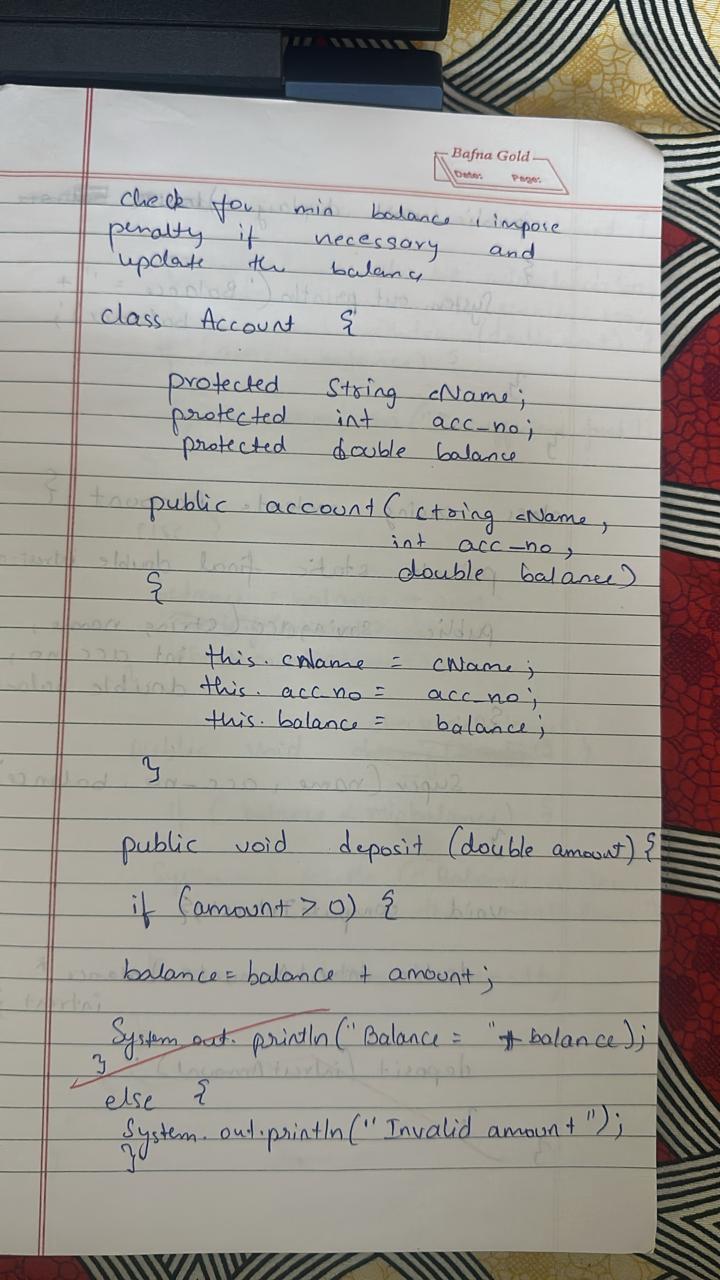 Bafna Gold
Date: Page:
check for min balance, impose
penalty if necessary and
update the balance
class Account {
protected String cName;
protected int acc_no;
protected double balance
public account( string cName,
int acc_no,
double balance)
{
this. cName = cName;
this. acc_no = acc_no;
this. balance = balance;
}
public void deposit (double amount) {
if (amount > 0) {
balance = balance + amount;
System. out. println(" Balance = "+ balance);
}
else {
System. out.println(" Invalid amount ");
}